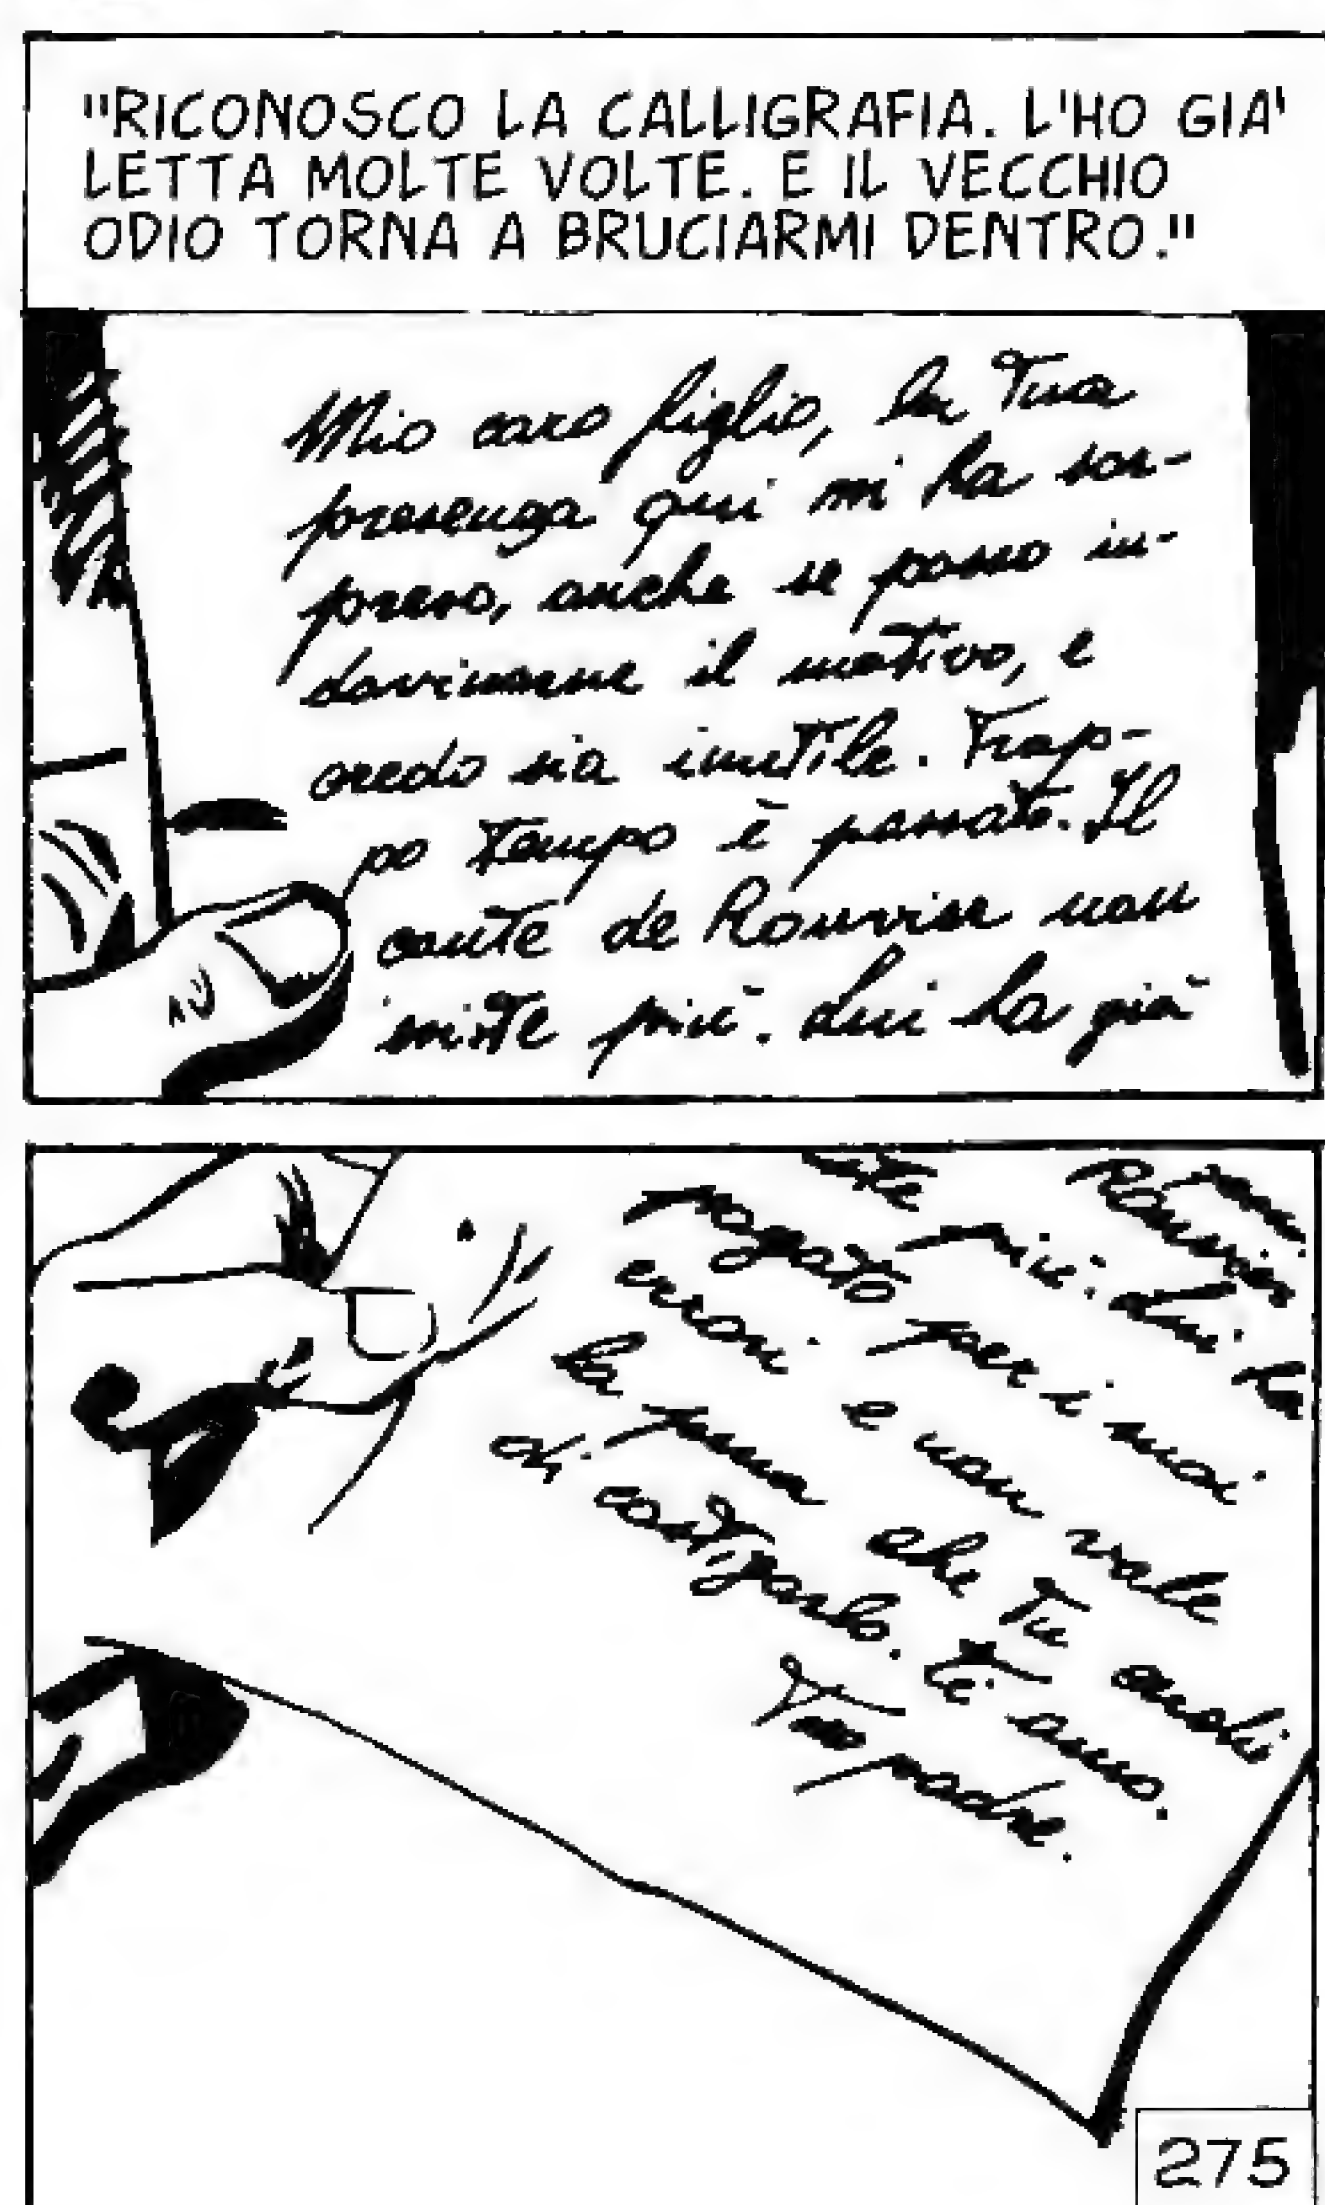 "RICONOSCO LA CALLIGRAFIA. L'HO GIA'
LETTA MOLTE VOLTE. E IL VECCHIO
ODIO TORNA A BRUCIARMI DENTRO."
Mio caro figlio, la tua
presenza qui mi ha sor-
preso, anche se posso in-
dovinarne il motivo, e
credo sia inutile. Trop-
po tempo è passato. Il
conte de Rouvier non
esiste più. Lui ha già
Rouvier
più. Lui ha
pagato per i suoi
errori e non vale
la pena che tu cerchi
di castigarlo. Ti amo.
Tuo padre.
275